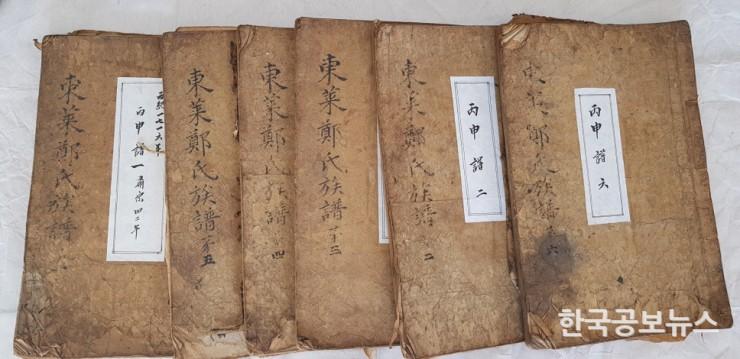 東萊鄭氏族譜
西紀一七一六年
丙申譜一 肅宗四二年
東萊鄭氏族譜 第五
東萊鄭氏族譜 四
東萊鄭氏族譜 第三
東萊鄭氏族譜 二
丙申譜 二
東萊鄭氏族譜 六
丙申譜 六
한국공보뉴스